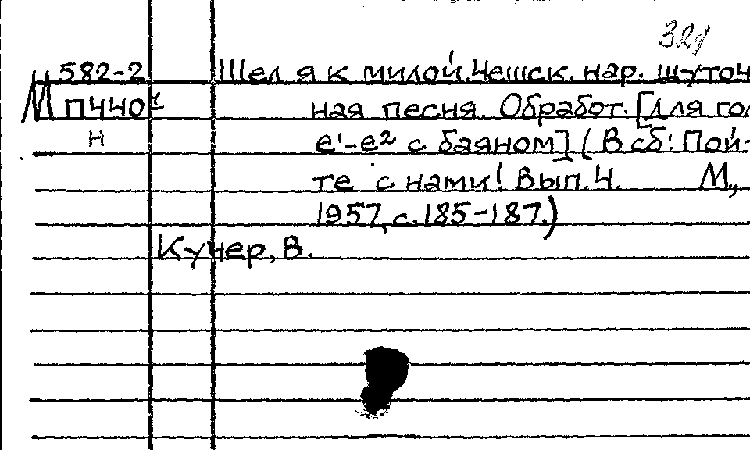 321
М 582-2 Шел я к милой. Чешск. нар. шуточ
М П440² ная песня. Обработ. [для гол
Н е¹-е² с баяном] (В сб: Пой-
те с нами! Вып. 4. М.,
1957, с. 185-187.)
Кучер, В.